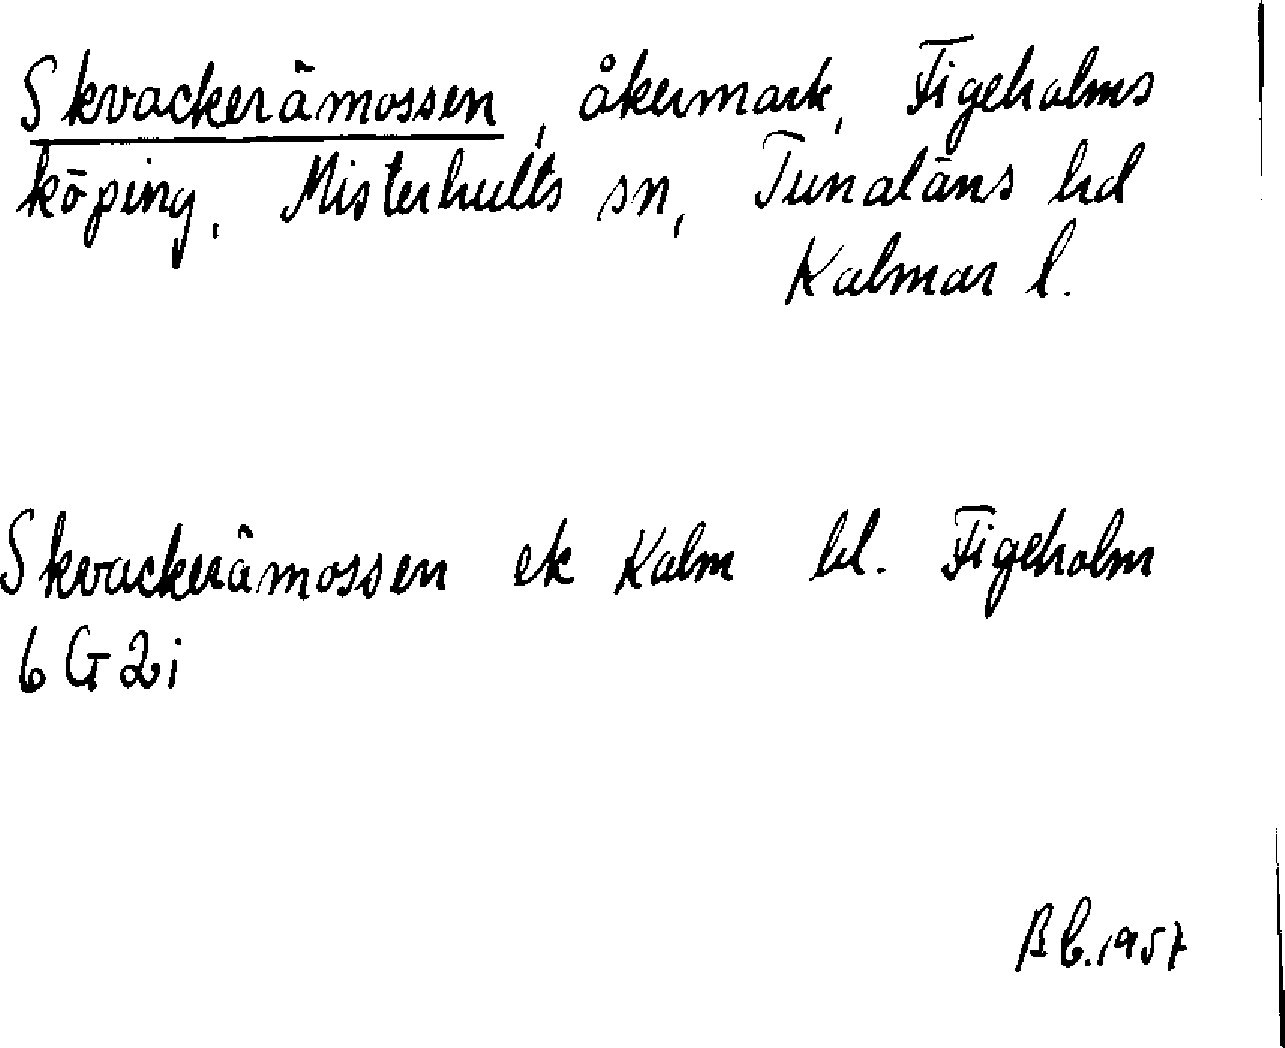 Skvackerämossen, åkermark, Figeholms
köping, Misterhults sn, Tunaläns hd
Kalmar l.
Skvackerämossen ek Kalm bl. Figeholm
6G2i
Bb. 1957